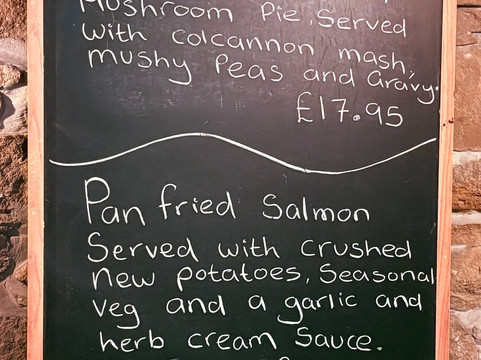 Mushroom Pie, Served
with colcannon mash,
mushy Peas and Gravy.
£17.95
Pan fried Salmon
Served with crushed
new potatoes, Seasonal
veg and a garlic and
herb cream Sauce.